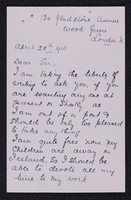 130 Gladstone Avenue
Wood Green
London N
April 28th
Dear Sir,
I am taking the liberty of
writing to ask you if you
are requiring any one at
present or shortly as
I am out of a post &
should be only too pleased
to take any thing
I am quite free now my
children are away in
Ireland. So I should be
able to devote all my
time to my work